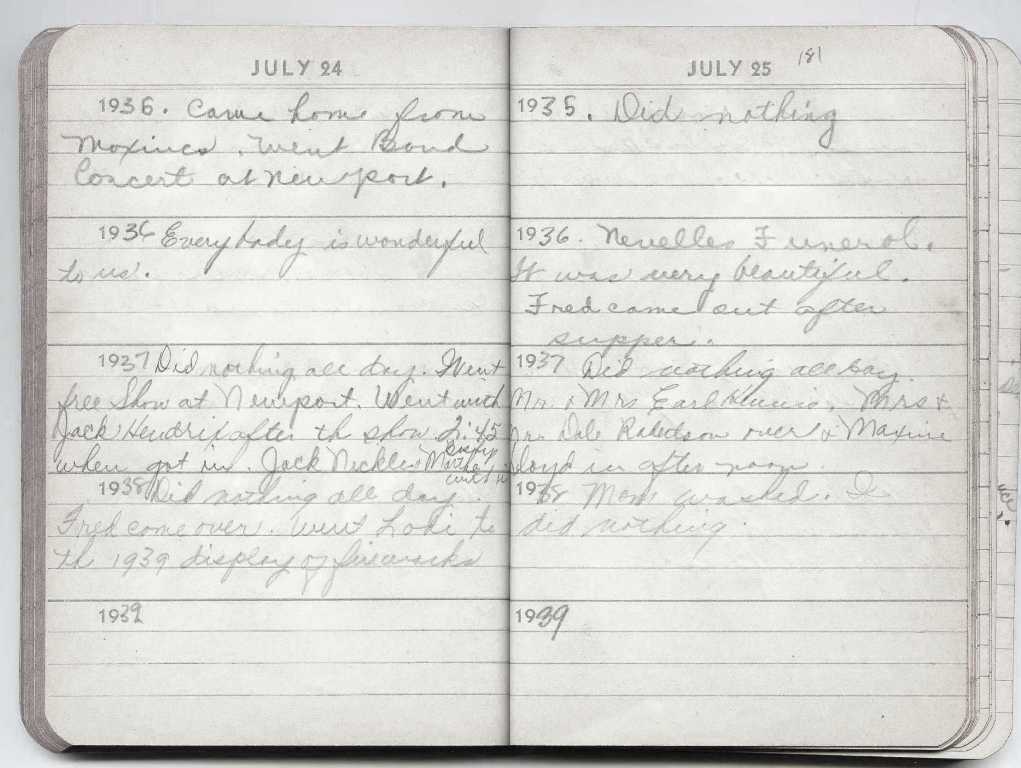 JULY 24
1936. Came home from
Maxines. Went Band
Concert at Newport.
1936 Everybody is wonderful
to us.
1937 Did nothing all day. Went
free Show at Newport. Went with
Jack Hendrix after th show. 2:45
when got in. Jack Nickles
1938 Did nothing all day.
Fred come over. Went Lodi to
th 1939 display of fireworks
1939
JULY 25 181
1935. Did nothing
1936. Nevelles Funeral.
It was very beautiful.
Fred came out after
supper.
1937 Did nothing all day.
Mr. & Mrs Earl Mrs &
Mr. Dale Robertson over & Maxine
Loyd in after noon.
1938 Mom washed. I
did nothing.
1939